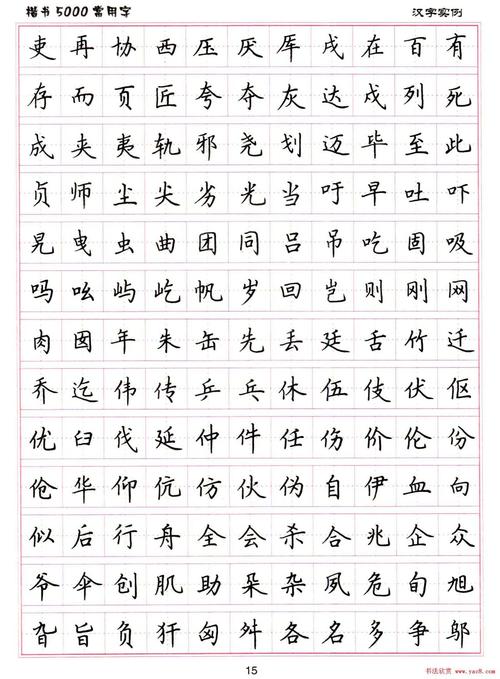 楷书5000常用字 汉字实例
吏再协西压厌厍戌在百有
存而页匠夸夺灰达戍列死
成夹夷轨邪尧划迈毕至此
贞师尘尖劣光当吁早吐吓
曳虫曲团同吕吊吃固吸
吗吆屿屹帆岁回岂则刚网
肉囡年朱缶先丢廷舌竹迁
乔迄伟传乒乓休伍伎伏伛
优臼伐延仲件任伤价伦份
伧华仰伉仿伙伪自伊血向
似后行舟全会杀合兆企众
爷伞创肌肋朵杂夙危旬旭
旮旨负犴匈舛各名多争邬
15
书法欣赏 www.yac8.com